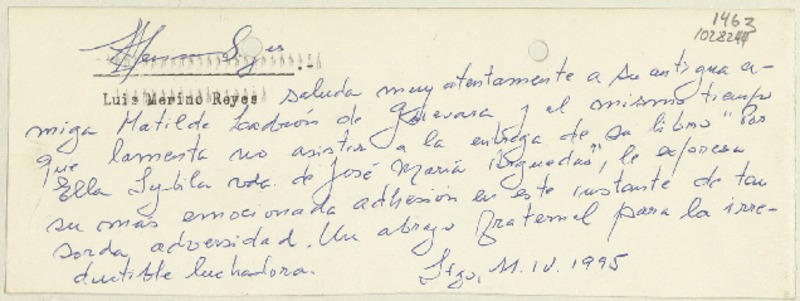 1463
1028244
Luis Merino Reyes saluda muy atentamente a su antigua a-
miga Matilde Ladrón de Guevara y al mismo tiempo
que lamenta no asistir a la entrega de su libro "Por
Ella Sybila vda. de José María Arguedas", le expresa
su más emocionada adhesión en este instante de tan
sorda adversidad. Un abrazo fraternal para la irre-
ductible luchadora. Stgo, 11.IV.1995